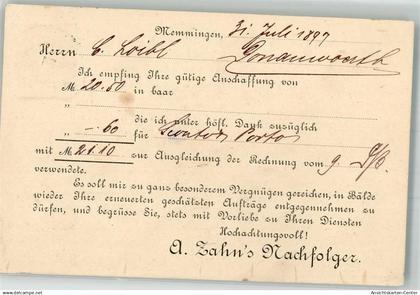 Memmingen, 31. Juli 1897
Herrn C. Loibl Donauwoerth
Ich empfing Ihre gütige Anschaffung von
M 20.50 in baar
„
„ die ich unter höfl. Dank zuzüglich
„ -.60 für Sconto & Porto
mit M 21.10 zur Ausgleichung der Rechnung vom 9.
verwendete.
Es soll mir zu ganz besonderem Vergnügen gereichen, in Bälde
wieder Ihre erneuerten geschätzten Aufträge entgegennehmen zu
dürfen, und begrüsse Sie, stets mit Vorliebe zu Ihren Diensten
Hochachtungsvoll!
A. Zahn's Nachfolger.